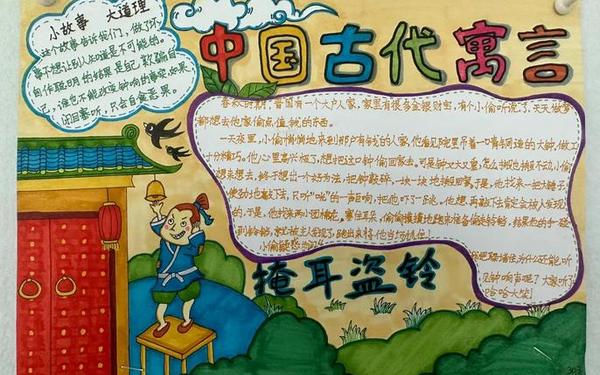 中国古代寓言
小故事 大道理
这个故事告诉我们，做了坏
事不想让别人知道是不可能的。
自作聪明的结果是自己欺骗自
己，谁也不能改变钟响的事实，如果
闭目塞听，只会自食恶果。
春秋时期，晋国有一个大户人家，家里有很多金银财宝，有个小偷听说了，天天做梦
都想去他家偷点值钱的东西。
一天夜里，小偷悄悄地来到那户有钱的人家，他看见院里吊着一口青铜铸造的大钟，做工
十分精巧。他心里高兴极了，想把这口钟偷回家去。可是钟又大又重，怎么搬也搬不动，小偷
想来想去，终于想出一个好方法，把钟敲碎，一块一块地搬回家。于是，他找来一把大锤子，
使劲地敲下去，只听"咣"的一声巨响，把他吓了一跳。他想，再敲下去肯定会被人发现
的，于是，他找来两小团棉花，塞住耳朵，
小偷疑惑地问
为什么还能听
见钟响声呢？大家听了
哈哈大笑！
掩耳盗铃